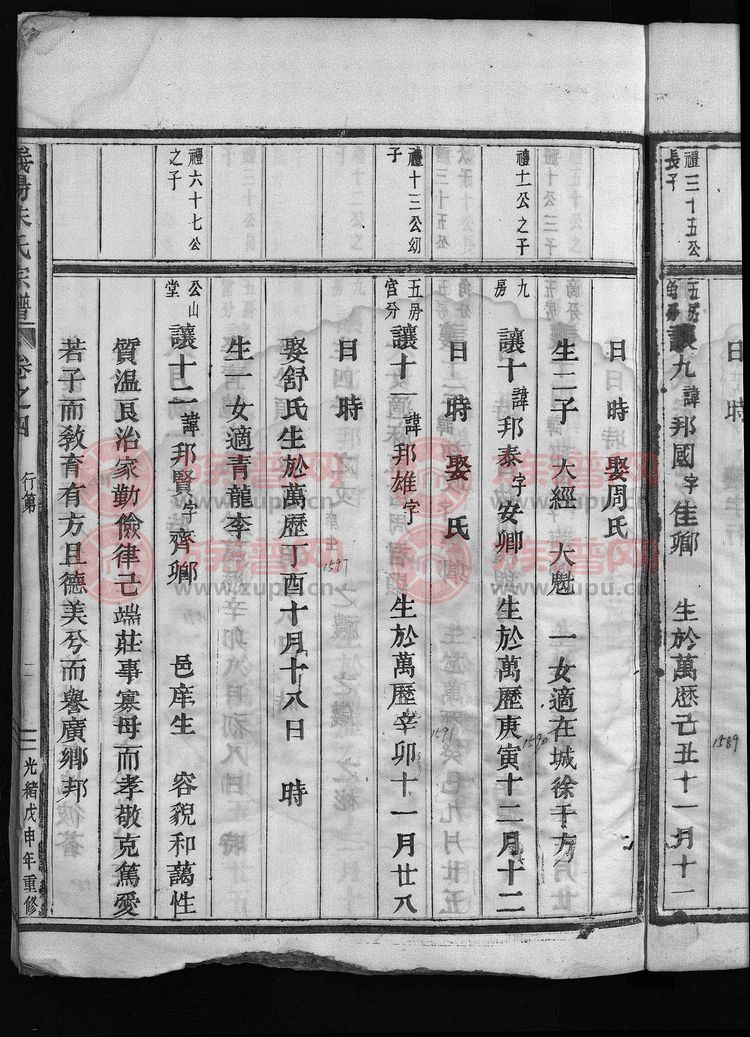 日 時
禮三十五公長子
五房 讓九 諱邦國 字佳鄉 生於萬歷己丑十一月十二
1589
日 時 娶周氏
生二子 大經 大魁 一女適在城徐于
禮十一公之子
九房 讓十 諱邦泰 字安卿 生於萬歷庚寅十二月十二
1590
日 時 娶 氏
禮十三公幼子
五房宫分 讓十 諱邦雄 字 生於萬歷辛卯十一月廿八
1591
日 時
娶舒氏生於萬歷丁酉十月十八日 時
1597
生一女適青龍李
禮六十七公之子
公山堂 讓十二 諱邦賢 字齊鄉 邑庠生 容貌和藹性
質溫良治家勤儉律己端莊事寡母而孝敬克篤愛
若子而教育有方且德美兮而譽廣鄉邦
義陽朱氏宗譜 卷之四 行第 二 光緒戊申年重修
族谱网
www.zupu.cn
族谱网
www.zupu.cn
族谱网
www.zupu.cn
族谱网
www.zupu.cn
族谱网
www.zupu.cn
族谱网
www.zupu.cn